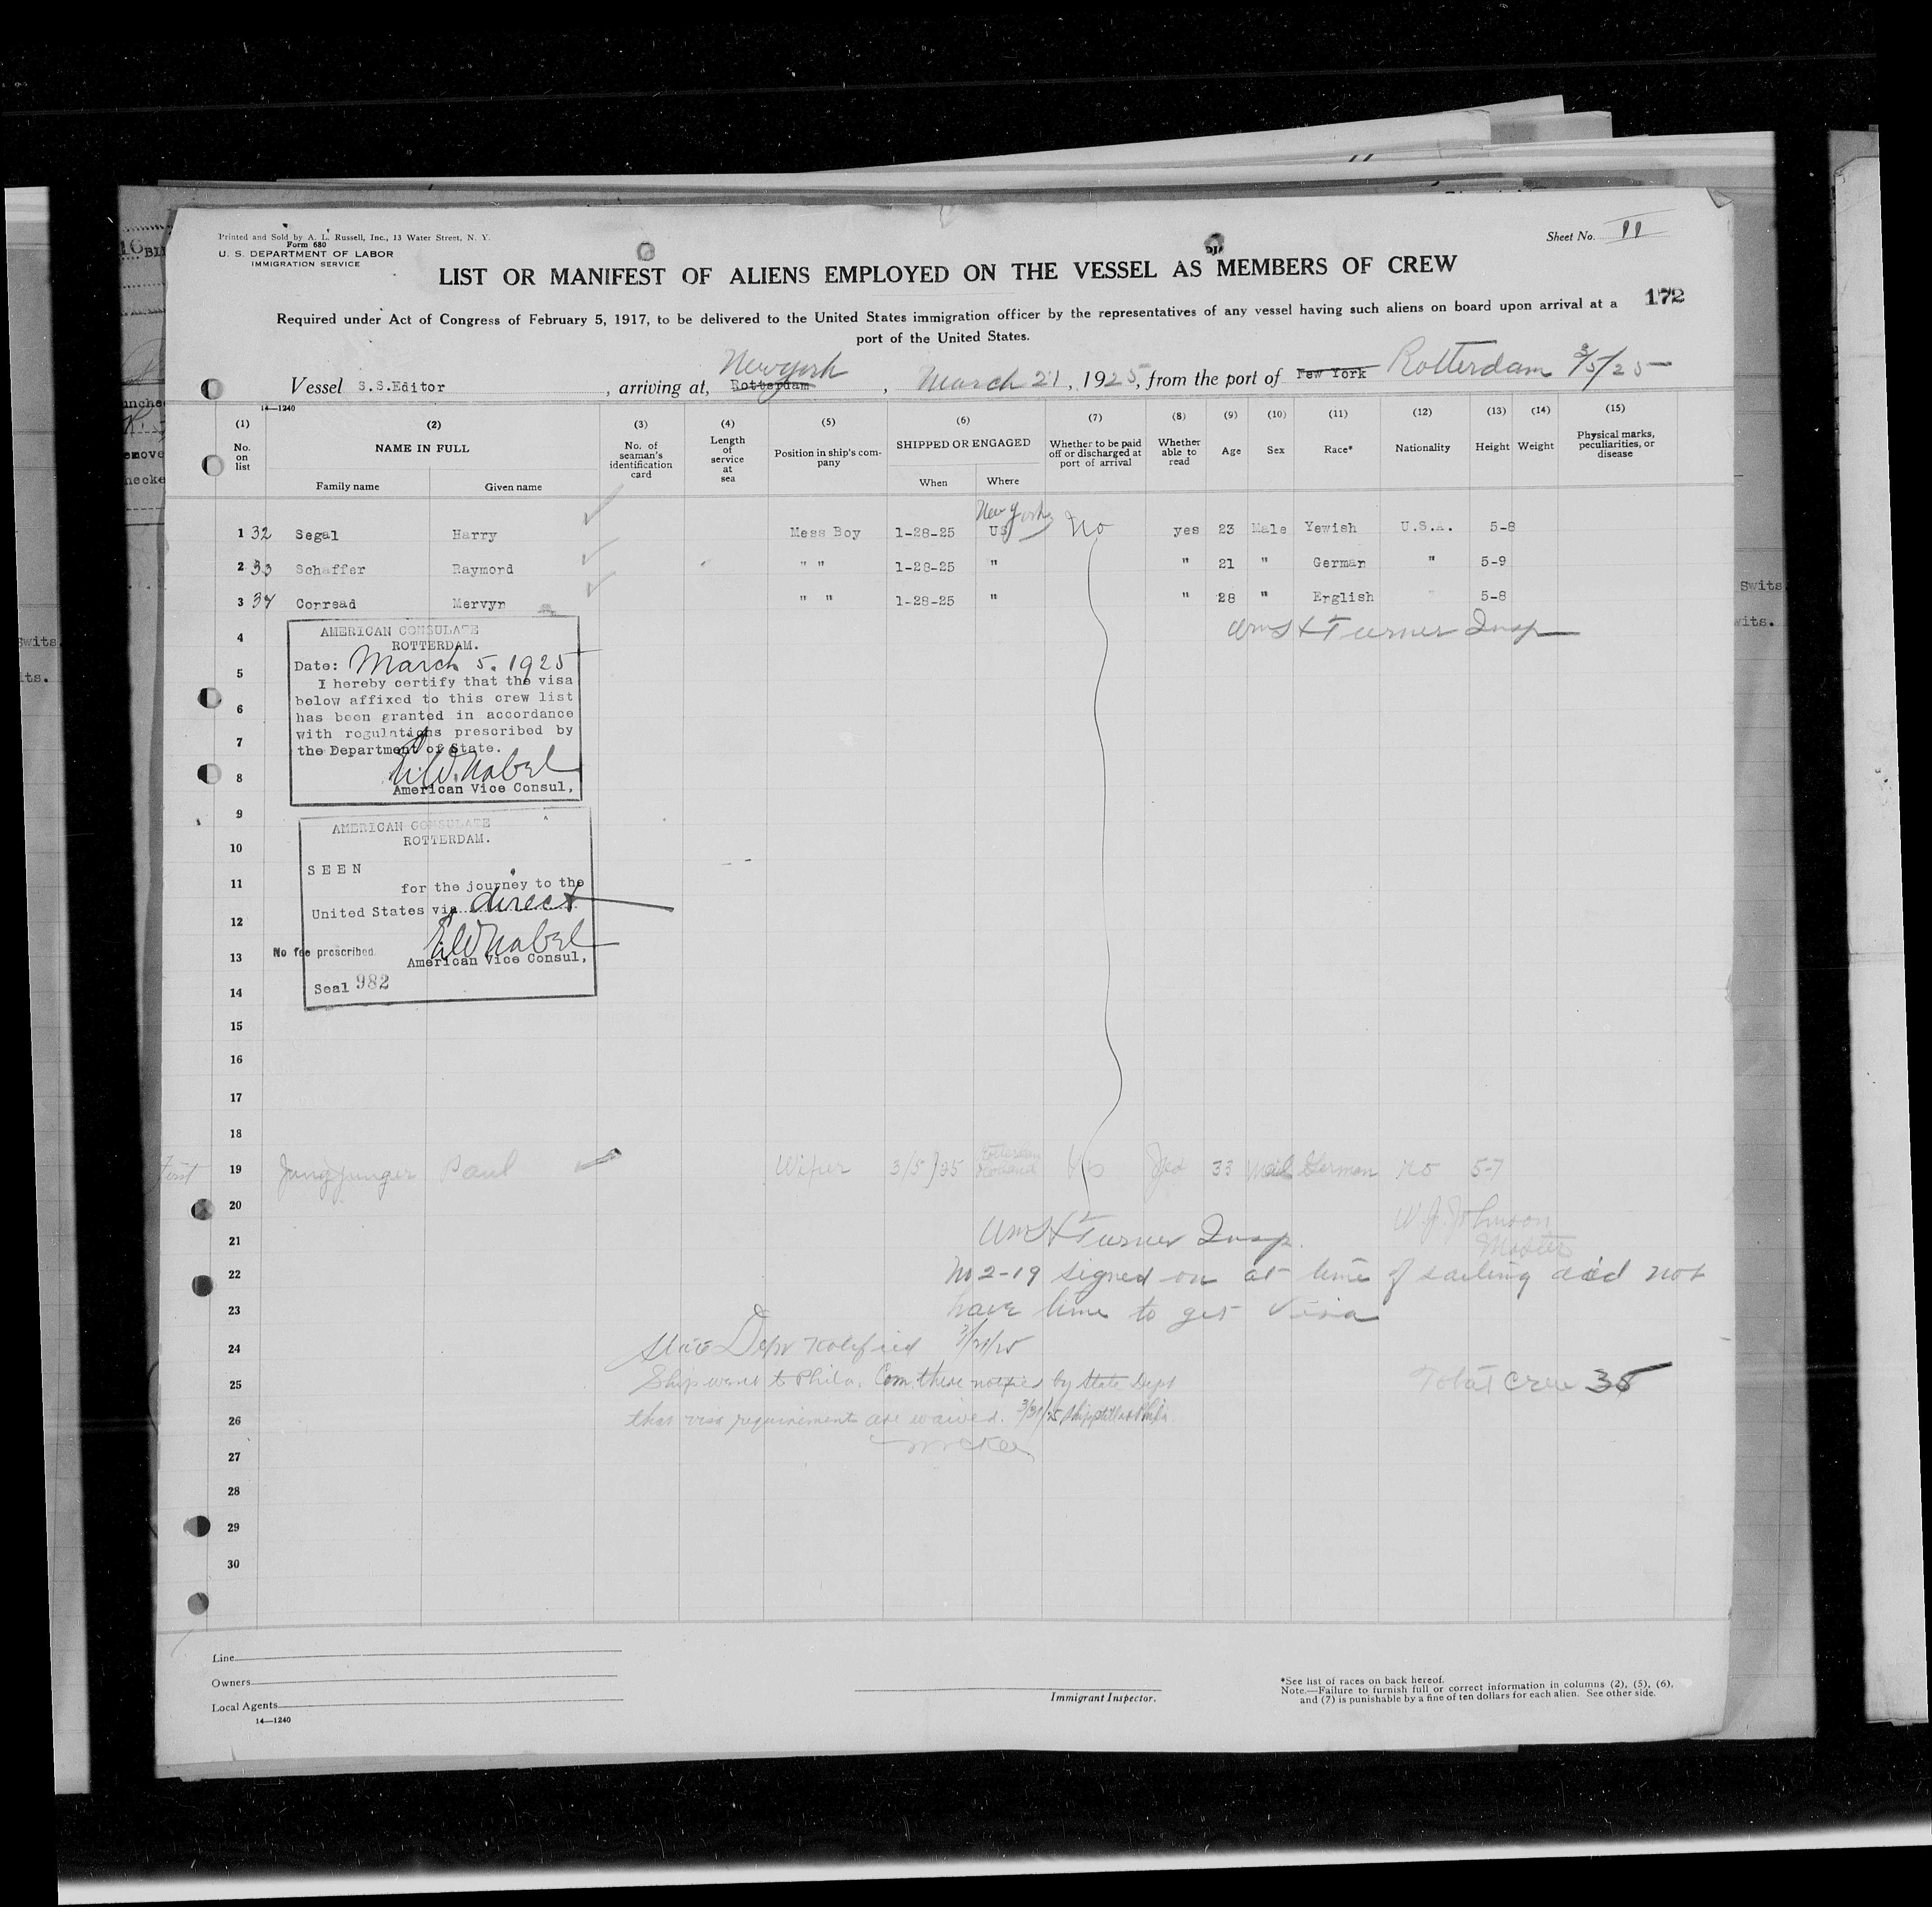 Printed and Sold by A. L. Russell, Inc., 13 Water Street, N. Y.
Form 680
U. S. DEPARTMENT OF LABOR
IMMIGRATION SERVICE
Sheet No. 11
LIST OR MANIFEST OF ALIENS EMPLOYED ON THE VESSEL AS MEMBERS OF CREW
172
Required under Act of Congress of February 5, 1917, to be delivered to the United States immigration officer by the representatives of any vessel having such aliens on board upon arrival at a
port of the United States.
New York
Vessel S.S.Editor, arriving at, Rotterdam, March 21, 1925, from the port of New York Rotterdam 3/5/25
14—1240
(1) (2) (3) (4) (5) (6) (7) (8) (9) (10) (11) (12) (13) (14) (15)
No. on list
NAME IN FULL
Family name
Given name
No. of seaman's identification card
Length of service at sea
Position in ship's company
SHIPPED OR ENGAGED
When
Where
Whether to be paid off or discharged at port of arrival
Whether able to read
Age
Sex
Race*
Nationality
Height
Weight
Physical marks, peculiarities, or disease
New York
1 32 Segal Harry Mess Boy 1-28-25 US No yes 23 Male Yewish U.S.A. 5-8
2 33 Schaffer Raymond " " 1-28-25 " " 21 " German " 5-9
3 34 Conread Mervyn " " 1-28-25 " " 28 " English " 5-8
Wm H Turner Insp
4
5
6
7
8
9
10
11
12
13
14
15
16
17
18
AMERICAN CONSULATE
ROTTERDAM.
Date: March 5. 1925
I hereby certify that the visa
below affixed to this crew list
has been granted in accordance
with regulations prescribed by
the Department of State.
American Vice Consul,
AMERICAN CONSULATE
ROTTERDAM.
SEEN
for the journey to the
United States via direct
No fee prescribed.
American Vice Consul,
Seal 982
Rotterdam
19 Paul Wiper 3/5/25 Holland 33 Male German 5-7
20
21
22
23
24
25
26
27
28
29
30
W. J. Johnson
Master
Wm H Turner Insp.
No 2-19 signed on at time of sailing did not
have time to get Visa
State Dept Notified 3/21/25
Ship went to Phila. Com. there notified by State Dept
that visa requirement are waived. 3/31/25 Ship still at Phila.
Total Crew 35
Line
Owners
Local Agents
14—1240
Immigrant Inspector.
*See list of races on back hereof.
Note.—Failure to furnish full or correct information in columns (2), (5), (6),
and (7) is punishable by a fine of ten dollars for each alien. See other side.